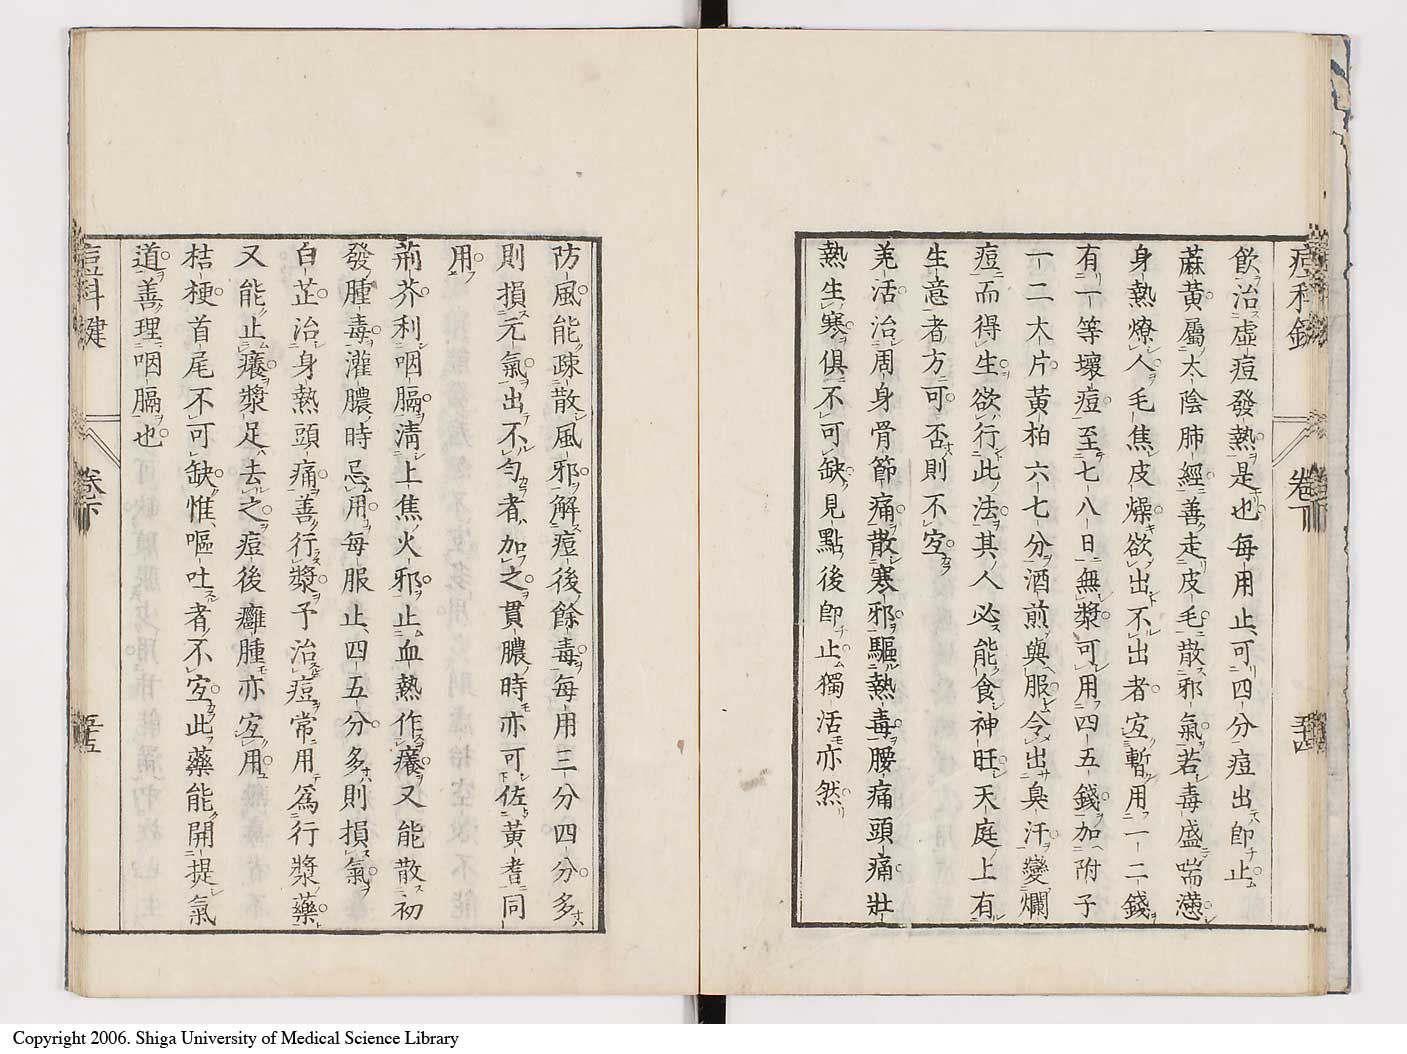 痘科鍵 卷下 五十四
飲治虛痘發熱是也每用止可四分痘出卽止
蔴黃屬太陰肺經善走皮毛散邪氣若毒盛喘懣
身熱燎人毛焦皮燥欲出不出者宐暫用一二錢
有一等壞痘至七八日無漿可用四五錢加附子
一二大片黃柏六七分酒煎與服令出臭汗變爛
痘而得生欲行此法其人必能食神旺天庭上有
生意者方可否則不宐
羌活治周身骨節痛散寒邪驅熱毒腰痛頭痛壯
熱生寒俱不可缺見點後卽止獨活亦然
防風能疎散風邪解痘後餘毒每用三分四分多
則損元氣出不勻者加之貫膿時亦可佐黃耆同
用
荊芥利咽膈淸上焦火邪止血熱作癢又能散初
發腫毒灌膿時忌用每服止四五分多則損氣
白芷治身熱頭痛善行漿予治痘常用爲行漿藥
又能止癢漿足去之痘後癰腫亦宐用
桔梗首尾不可缺惟嘔吐者不宐此藥能開提氣
道善理咽膈也
痘科鍵 卷下 五十五
Copyright 2006. Shiga University of Medical Science Library